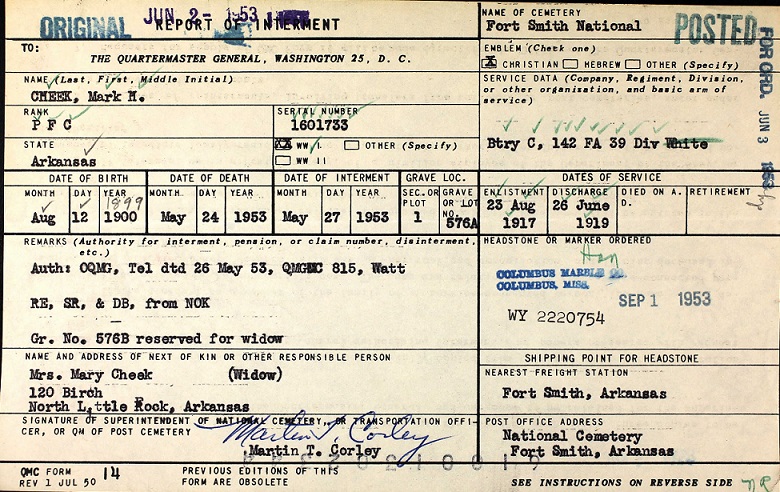 ORIGINAL
JUN 2- 1953
REPORT OF INTERMENT
TO:
THE QUARTERMASTER GENERAL, WASHINGTON 25, D. C.
NAME (Last, First, Middle Initial)
CHEEK, Mark H.
RANK
P F C
SERIAL NUMBER
1601733
STATE
Arkansas
XX WW I OTHER (Specify)
WW II
NAME OF CEMETERY
Fort Smith National
POSTED
EMBLEM (Check one)
X CHRISTIAN HEBREW OTHER (Specify)
SERVICE DATA (Company, Regiment, Division,
or other organization, and basic arm of
service)
Btry C, 142 FA 39 Div White
FOR ORD. JUN 3 1953
DATE OF BIRTH
MONTH DAY YEAR
1899
Aug 12 1900
DATE OF DEATH
MONTH DAY YEAR
May 24 1953
DATE OF INTERMENT
MONTH DAY YEAR
May 27 1953
GRAVE LOC.
SEC. OR PLOT
1
GRAVE OR LOT NO.
576A
DATES OF SERVICE
ENLISTMENT DISCHARGE DIED ON A. D. RETIREMENT
23 Aug 26 June
1917 1919
REMARKS (Authority for interment, pension, or claim number, disinterment,
etc.)
Auth: OQMG, Tel dtd 26 May 53, QMGMC 815, Watt
RE, SR, & DB, from NOK
Gr. No. 576B reserved for widow
HEADSTONE OR MARKER ORDERED
COLUMBUS MARBLE CO.
COLUMBUS, MISS.
SEP 1 1953
WY 2220754
NAME AND ADDRESS OF NEXT OF KIN OR OTHER RESPONSIBLE PERSON
Mrs. Mary Cheek (Widow)
120 Birch
North Little Rock, Arkansas
SHIPPING POINT FOR HEADSTONE
NEAREST FREIGHT STATION
Fort Smith, Arkansas
SIGNATURE OF SUPERINTENDENT OF NATIONAL CEMETERY, OR TRANSPORTATION OFFI-
CER, OR QM OF POST CEMETERY
Martin T. Corley
Martin T. Corley
POST OFFICE ADDRESS
National Cemetery
Fort Smith, Arkansas
QMC FORM 14
REV 1 JUL 50
PREVIOUS EDITIONS OF THIS
FORM ARE OBSOLETE
SEE INSTRUCTIONS ON REVERSE SIDE